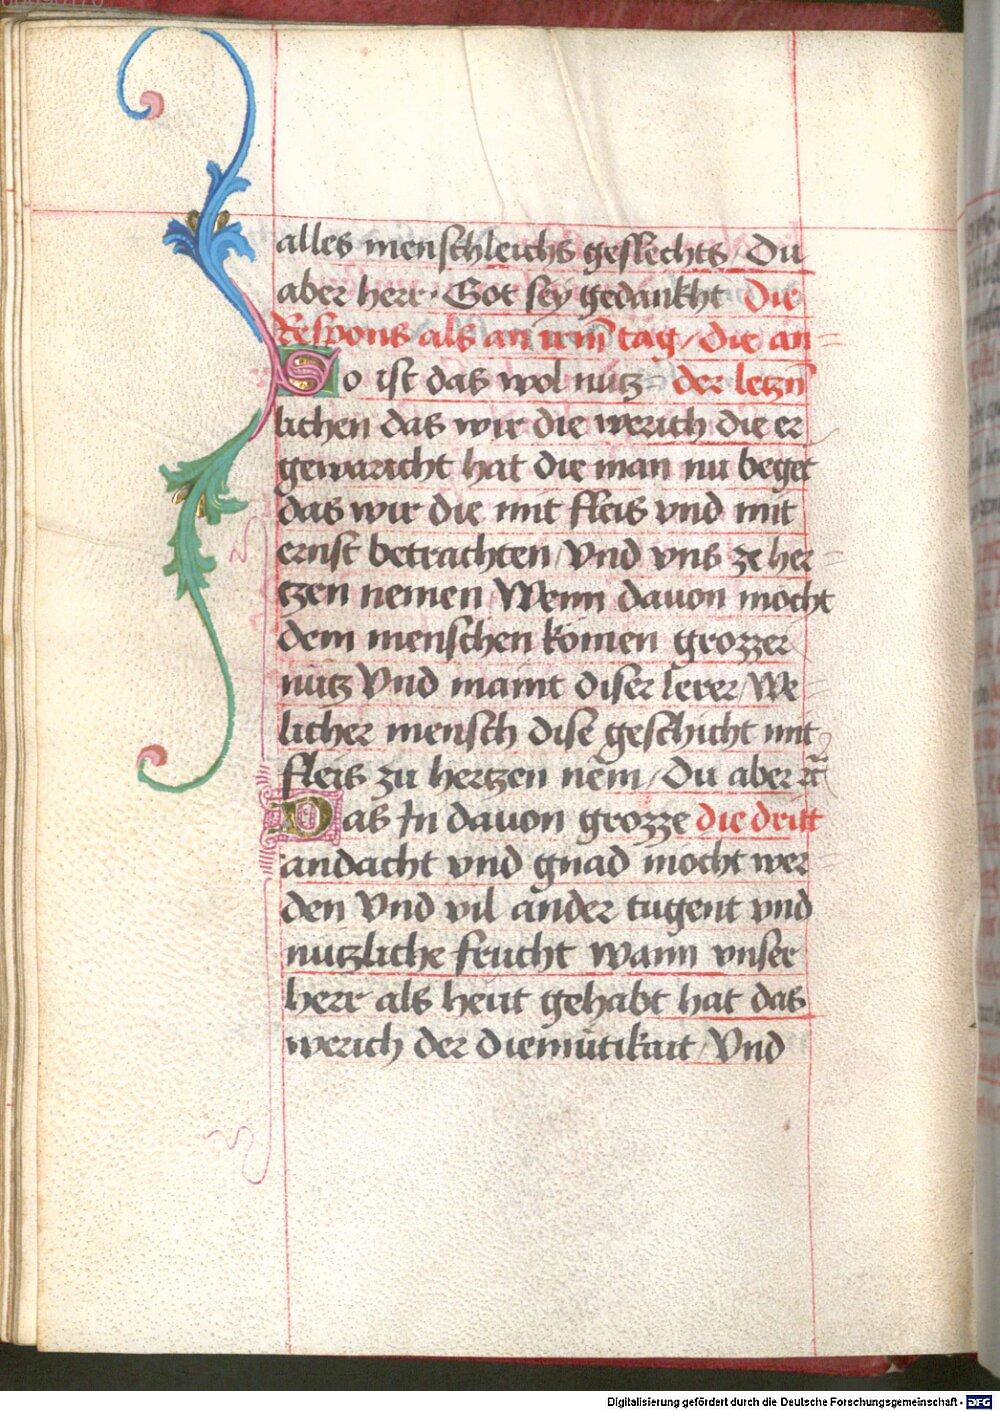 alles menschleichs geslechts / Du
aber herr · Got sey gedankht die
Respons als an irm̄ tag / die an=
So ist das wol nutz= der letzn̄
lichen das wir die werich die er
gewaricht hat die man nu beget
das wir die mit fleis vnd mit
ernst betrachten / Vnd vns ze her=
tzen nemen / Wenn dauon möcht
dem menschen komen grozzer
nutz Vnd maint diser lerer / We=
licher mensch dise geschicht mit
fleis zu hertzen nem / Du aber
Das In dauon grozze die dritt
andacht vnd gnad möcht wer=
den Vnd vil ander tugent vnd
nutzliche frucht wann vnser
herr als heut gehabt hat das
werich der diemütikait / Vnd
Digitalisierung gefördert durch die Deutsche Forschungsgemeinschaft - DFG